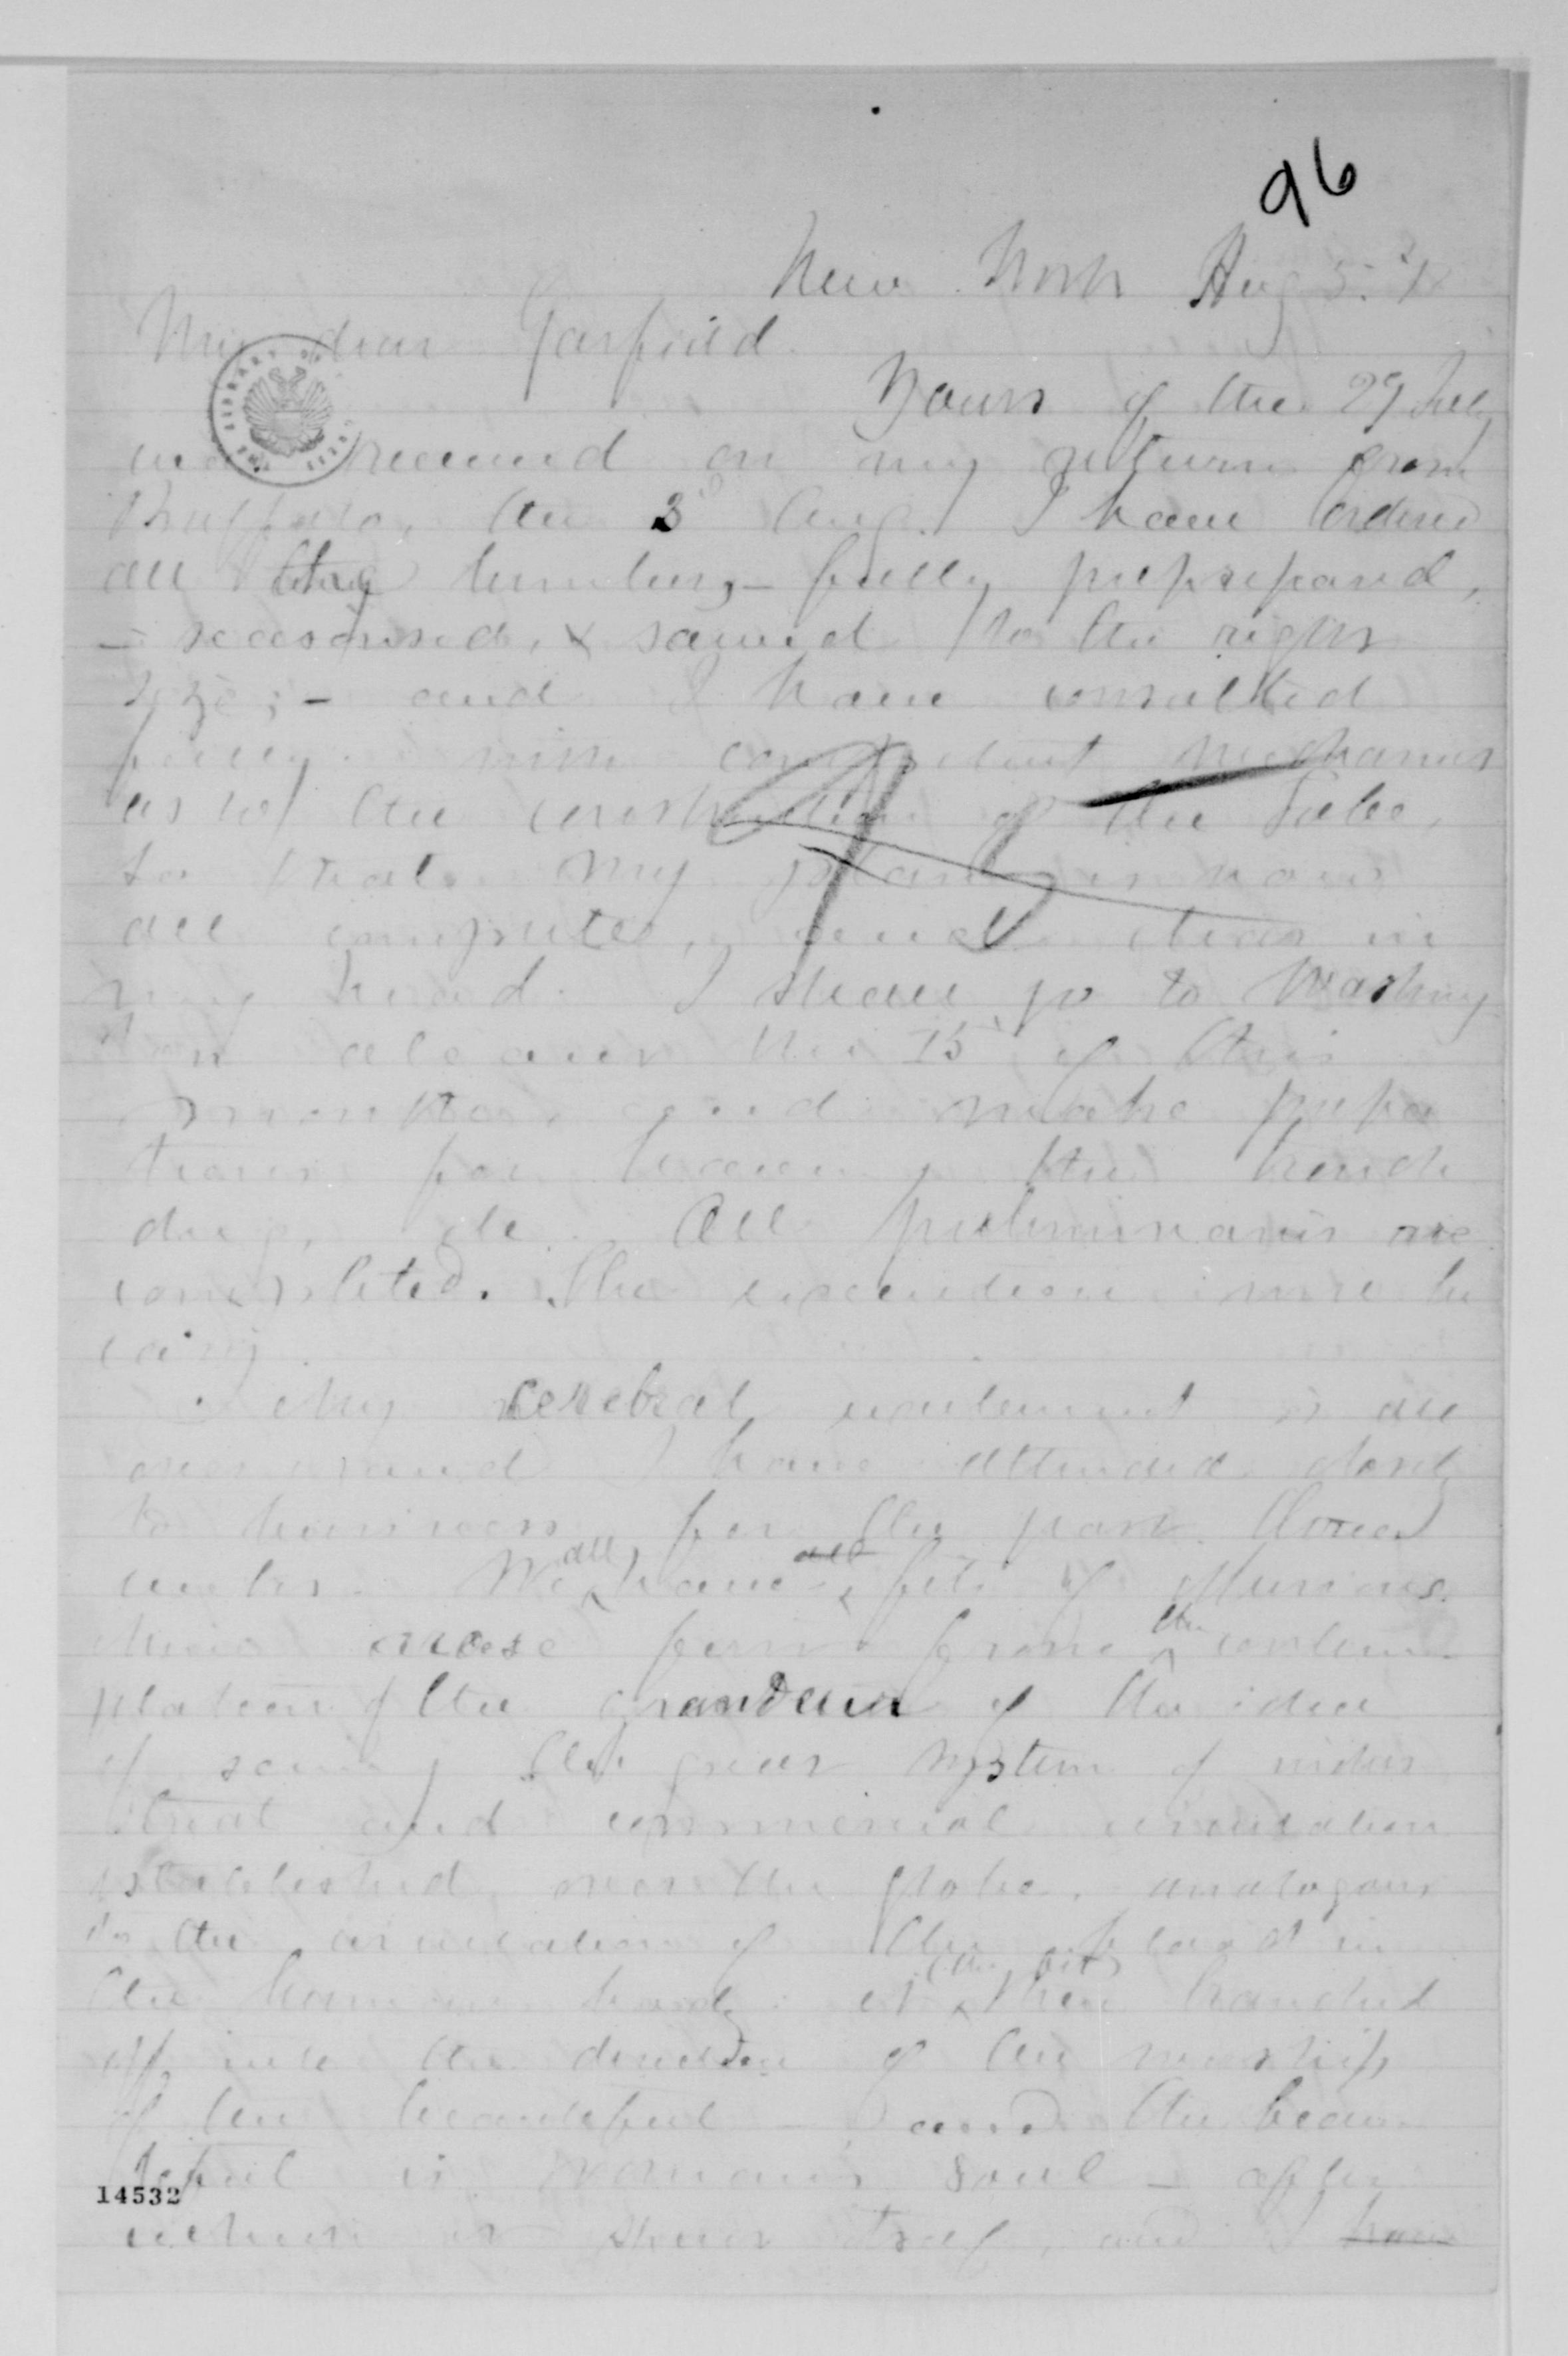 96
New York Aug 5.
My dear Garfield.
Yours of the 29 July
was received on my return from
Buffalo, the 3d Aug. I have ordered
all the timber, - fully prepared,
- seasoned, & sawed to the right
size; - and I have consulted
fully with competent mechanics
as to the construction of the tube,
so that my plan is now
all complete, and clear in
my head. I shall go to Washing
ton about the 15 of this
month, and make prepa
tions for having the trench
dug, etc. All preliminaries are
completed. The execution must be
easy.
My cerebral excitement is all
over and I have attended closely
to business for the past three
weeks. We all have all fits of
mine arose from the contem-
plation of the grandeur of the idea
of seeing the great system of indus
trial and commercial circulation
established over the globe, analogous
to the circulation of the blood in
the human body: it (the fit) then branched
off into the direction of the worship
of the beautiful - and the beau
tiful is woman's soul - after
which it and have
14532